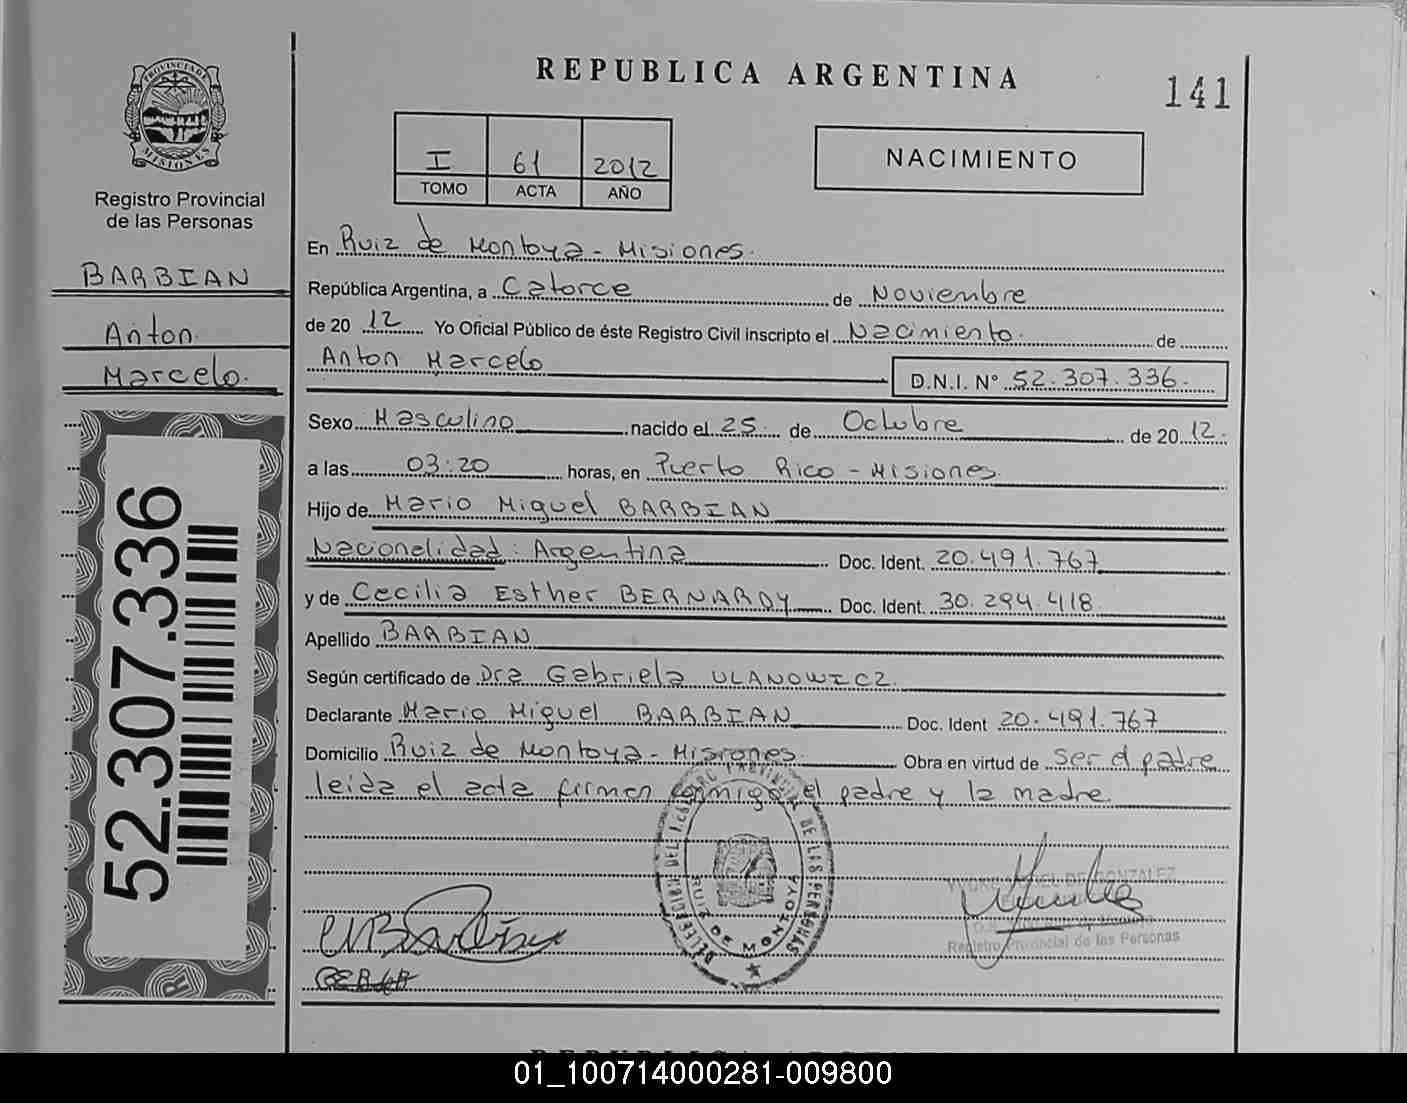 REPUBLICA ARGENTINA
141
PROVINCIA DE MISIONES
Registro Provincial
de las Personas
I 61 2012
TOMO ACTA AÑO
NACIMIENTO
BARBIAN
Anton
Marcelo.
52.307.336
En Ruiz de Montoya - Misiones.
República Argentina, a Catorce de Noviembre
de 20 12 Yo Oficial Público de éste Registro Civil inscripto el Nacimiento. de
Anton Marcelo D.N.I. N° 52.307.336.
Sexo Masculino nacido el 25 de Octubre de 20 12.
a las 03:20 horas, en Puerto Rico - Misiones.
Hijo de Mario Miguel BARBIAN
Nacionalidad: Argentina Doc. Ident. 20.491.767
y de Cecilia Esther BERNARDY Doc. Ident. 30.294.418
Apellido BARBIAN
Según certificado de Dra Gabriela ULANOWICZ
Declarante Mario Miguel BARBIAN Doc. Ident 20.491.767
Domicilio Ruiz de Montoya - Misiones Obra en virtud de ser el padre
leida el acta firman conmigo el padre y la madre.
DELEGACION DEL REGISTRO PROVINCIAL DE LAS PERSONAS
RUIZ DE MONTOYA
DE GONZALEZ
Registro Provincial de las Personas
01_100714000281-009800